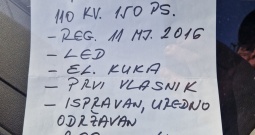 110 KV. 150 PS.
- REG. 11 MJ. 2016
- LED
- EL. KUKA
- PRVI VLASNIK
- ISPRAVAN, UREDNO
ODRŽAVAN